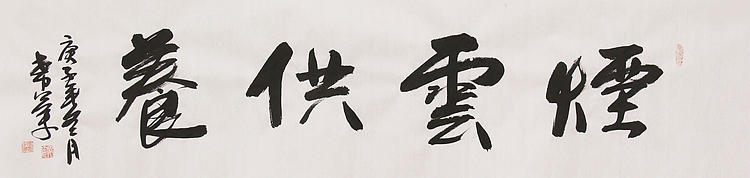 煙雲供養
庚子年冬月